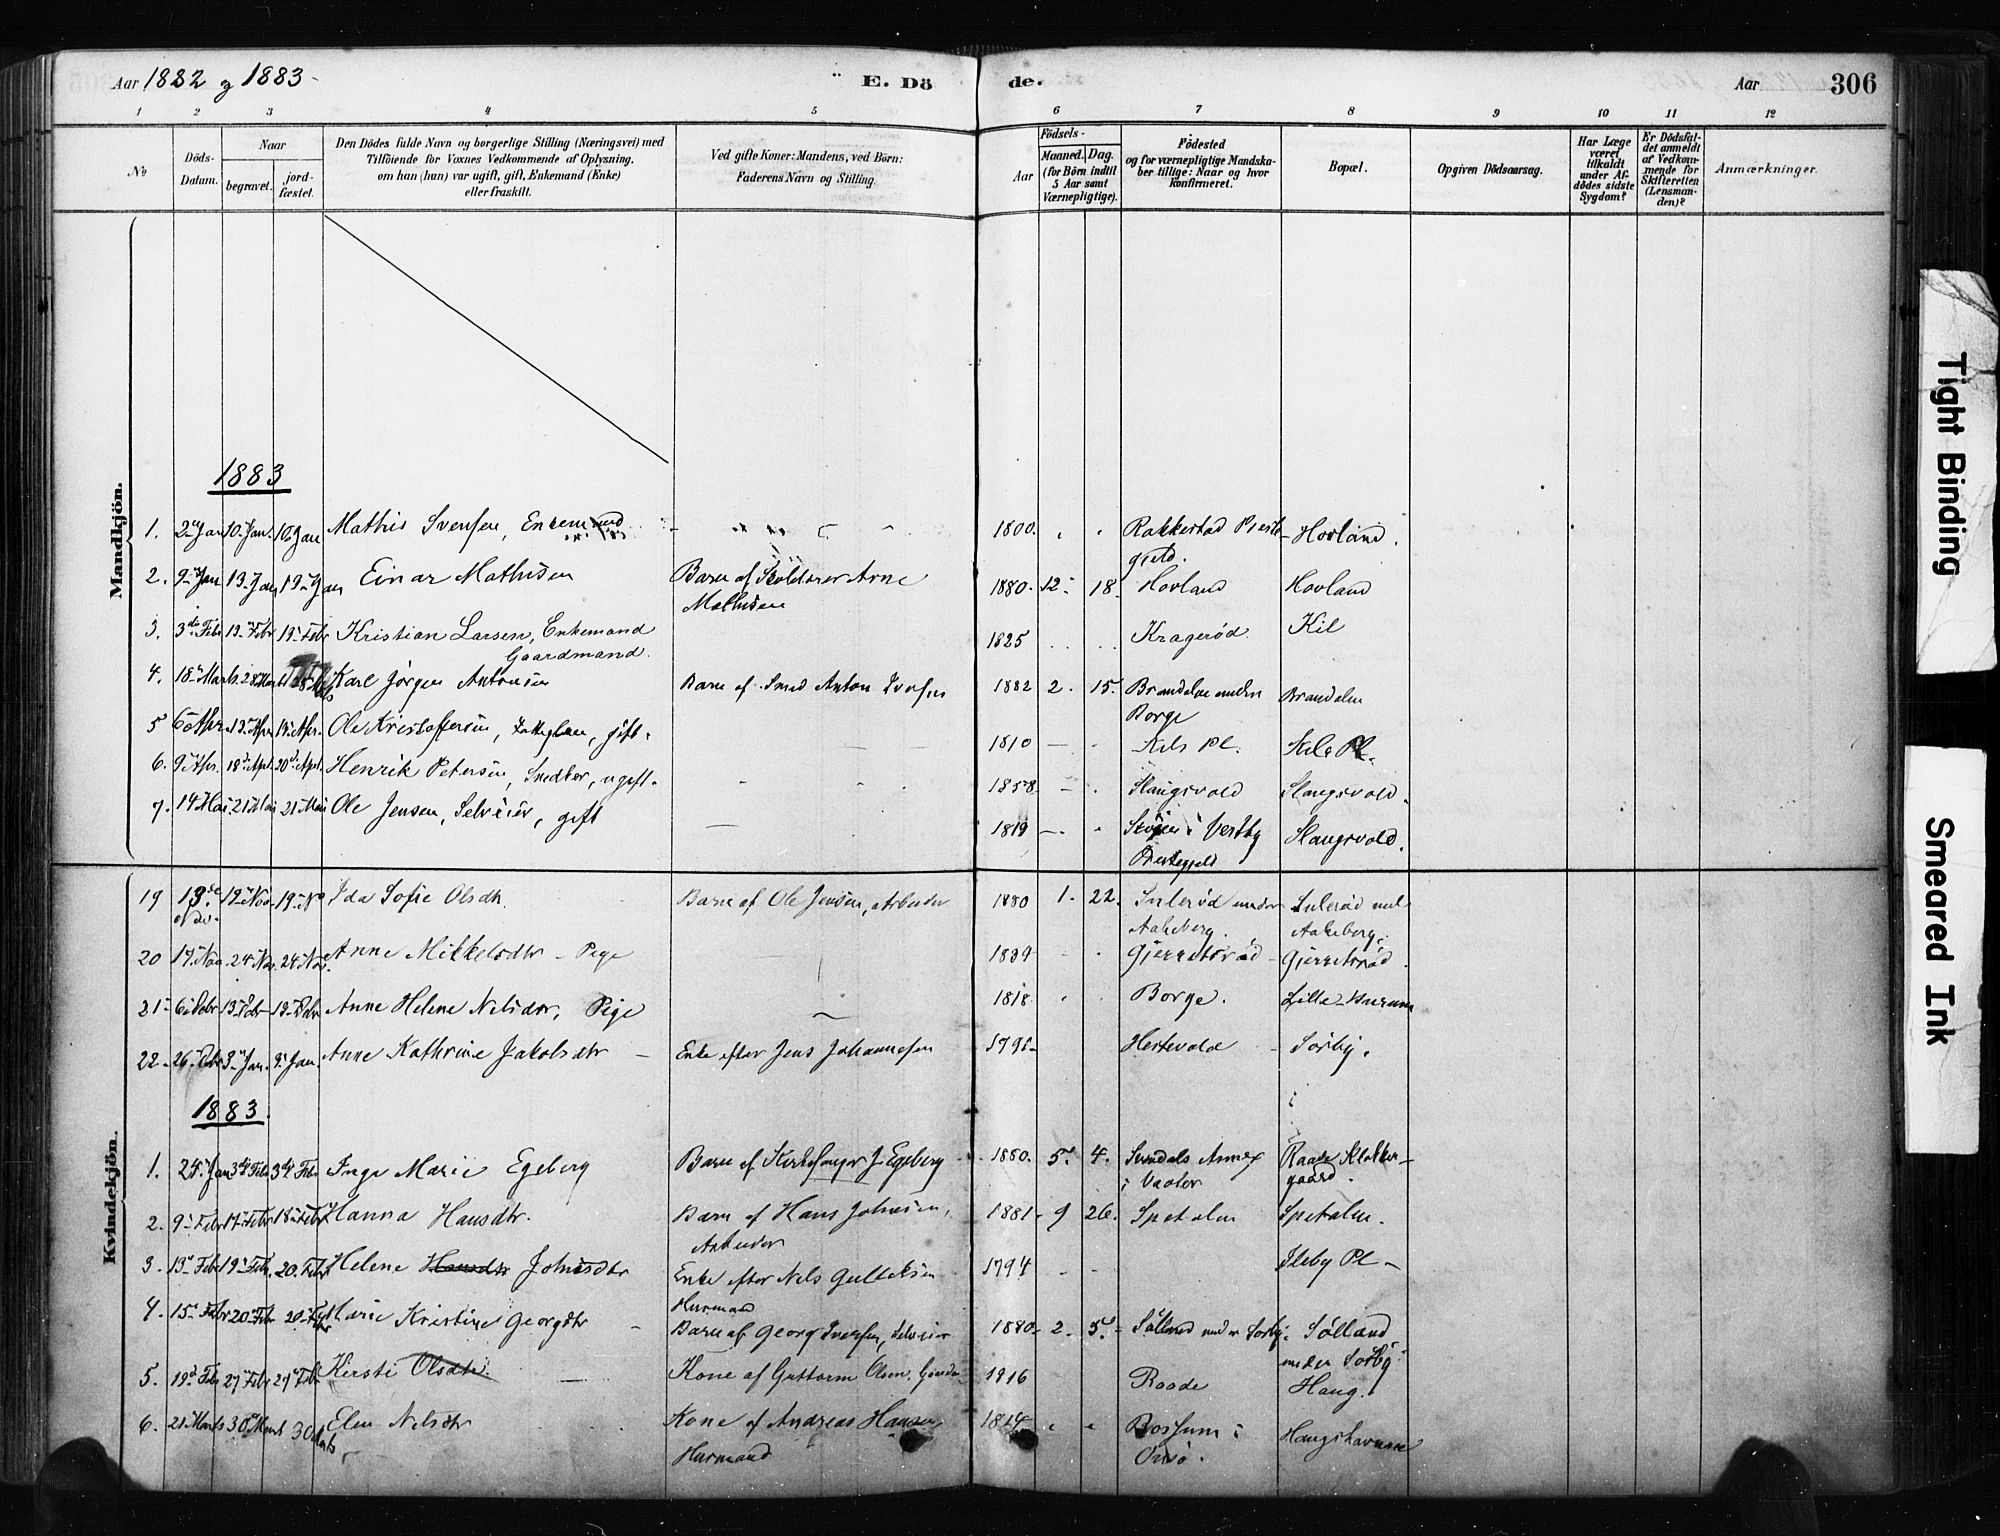 Aar 1882 og 1883
E. Dö de.
Aar 306
1 2 3 4 5 6 7 8 9 10 11 12
No
Döds-Datum.
Naar
begravet.
jord-fæstet.
Den Dödes fulde Navn og borgerlige Stilling (Næringsvei) med
Tilföiende for Voxnes Vedkommende af Oplysning,
om han (hun) var ugift, gift, Enkemand (Enke)
eller fraskilt.
Ved gifte Koner: Mandens, ved Börn:
Faderens Navn og Stilling.
Födsels-
Aar
Maaned. Dag.
(for Börn indtil
5 Aar samt
Værnepligtige).
Födested
og for værnepligtige Mandska-
ber tillige: Naar og hvor
konfirmeret.
Bopæl.
Opgiven Dödsaarsag.
Har Læge
været
tilkaldt
under Af-
dödes sidste
Sygdom?
Er Dödsfal-
det anmeldt
af Vedkom-
mende for
Skifteretten
(Lensman-
den)?
Anmærkninger.
Mandkjön.
1883
1. 2 Jan 10 Jan. 10 Jan Mathis Svensen, Enkemand 1800. Rakkestad Preste- Hovland.
gjeld.
2. 9 Jan 13 Jan 19 Jan Einar Mathisen Barn af Arne 1880. 12 18 Hovland Hovland
Mathisen
3. 3 Febr 19 Febr 19 Febr Kristian Larsen, Enkemand 1825 Kragerød Kil
Gaardmand.
4. 18 Marts 28 Marts Karl Jörgen Antonsen Barn af Smed Anton Iversen 1882 2. 15. Brandelen under Brandelen
Borge
5 6 Apr 13 Apr Apr. Ole Kristoffersen, gift. 1810 Kils Pl. Kils Pl.
6. 9 Apr. 18 Apr. 20 Apr. Henrik Petersen, Snedker, ugift. 1858 Slangsvold Slangsvold.
7. 14 Mai 21 Mai 21 Mai Ole Jensen, Selveier, gift 1819 i Vestby Slangsvold.
Prestegjeld
19 13 Nov 19 Nov Ida Sofie Olsdtr. Barn af Ole Jensen, Arbeider 1880 1. 22. Sulerød under Sulerød und
Aakeberg. Aakeberg.
20 Nov 24 Nov 24 Nov. Anne Mikkelsdtr - Pige Gjerretsrød Gjerretsrød.
21 6 Dcbr 13 Dcbr 13 Dcbr Anne Helene Nelsdtr, Pige 1818 Borge. Lille-Huseum
22 26 Dcbr 9 Jan. 9 Jan. Anne Kathrine Jakobsdtr Enke efter Jens Johannesen Hestevold Sørby.
1883.
Kvindekjön.
1. 24 Jan 3 Febr 3 Febr Inga Marie Egeberg Barn af Kirkesanger J. Egeberg 1880. 5. 4. Svindals Annex Raade Klokker-
i Vaaler gaard.
2. 9 Febr 17 Febr 18 Febr Hanna Hansdtr. Barn af Hans Johnsen, 1881 9 26. Spetalen Spetalen.
Arbeider
3. 13 Febr 19 Feb. 20. Febr Helene Johnsdtr Enke efter Nels Gulleksen 1794 Ileby Pl -
Husmand
4. 15 Febr 20 Febr 20 Febr Marie Kristine Georgsdtr Barn af Georg Iversen, Selveier 1880 2. 5. Sølland under Sørby Sølland
under Sørby
5. 19 Febr 27 Febr 27 Febr Kirsti Olsdtr. Kone af Guttorm Olsen, 1816 Raade Haug.
6. 21 Marts 30 Marts 30 Marts Elen Nelsdtr Kone af Andreas Hansen 1814 Rossum i Haugshavnen
Husmand Onsø.
Tight Binding
Smeared Ink